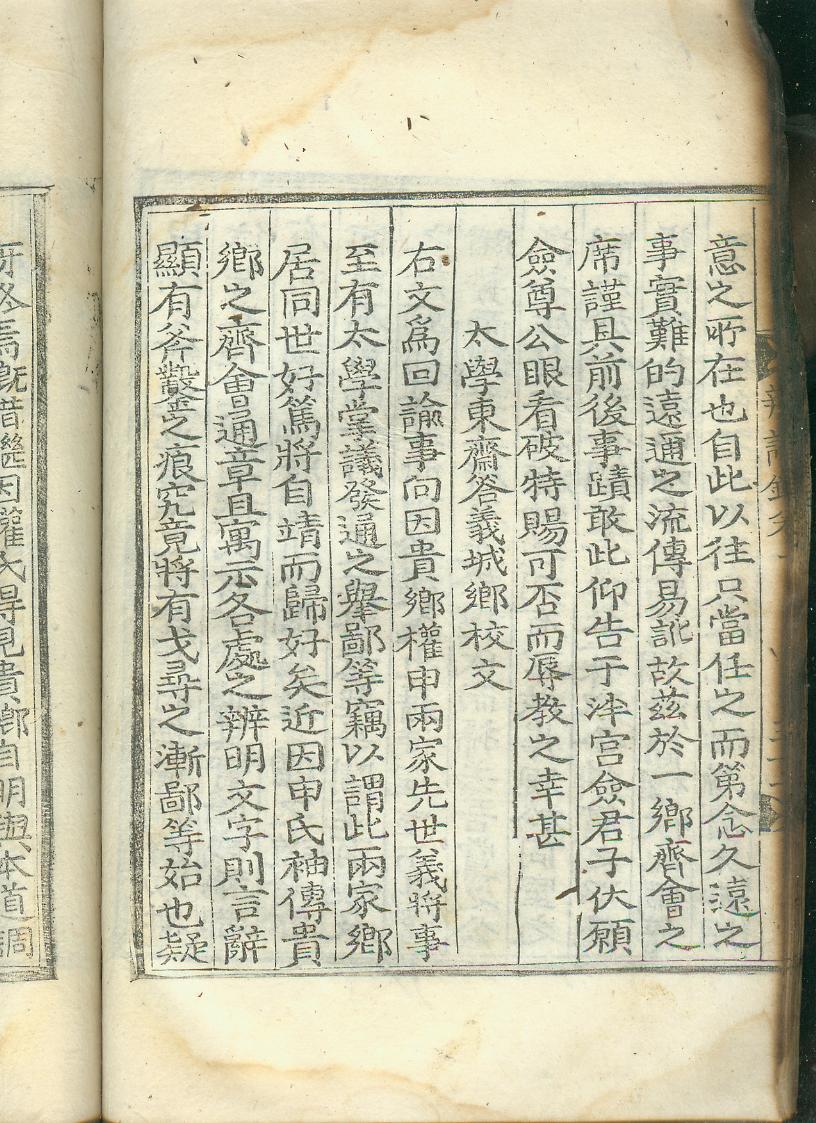 意之所在也自此以往只當任之而第念久遠之
事實難的遠通之流傳易訛故茲於一鄉齊會之
席謹具前後事蹟敢此仰告于泮宮僉君子伏願
僉尊公眼看破特賜可否而辱教之幸甚
太學東齋答義城鄉校文
右文爲回諭事向因貴鄉權申兩家先世義將事
至有太學掌議發通之擧鄙等竊以謂此兩家鄉
居同世好篤將自靖而歸好矣近因申氏袖傳貴
鄉之齊會通章且寓示各處之辨明文字則言辭
顯有斧鑿之痕究竟將有戈尋之漸鄙等始也疑
訝終焉慨惜繼因權氏得見貴鄉自明與本道調